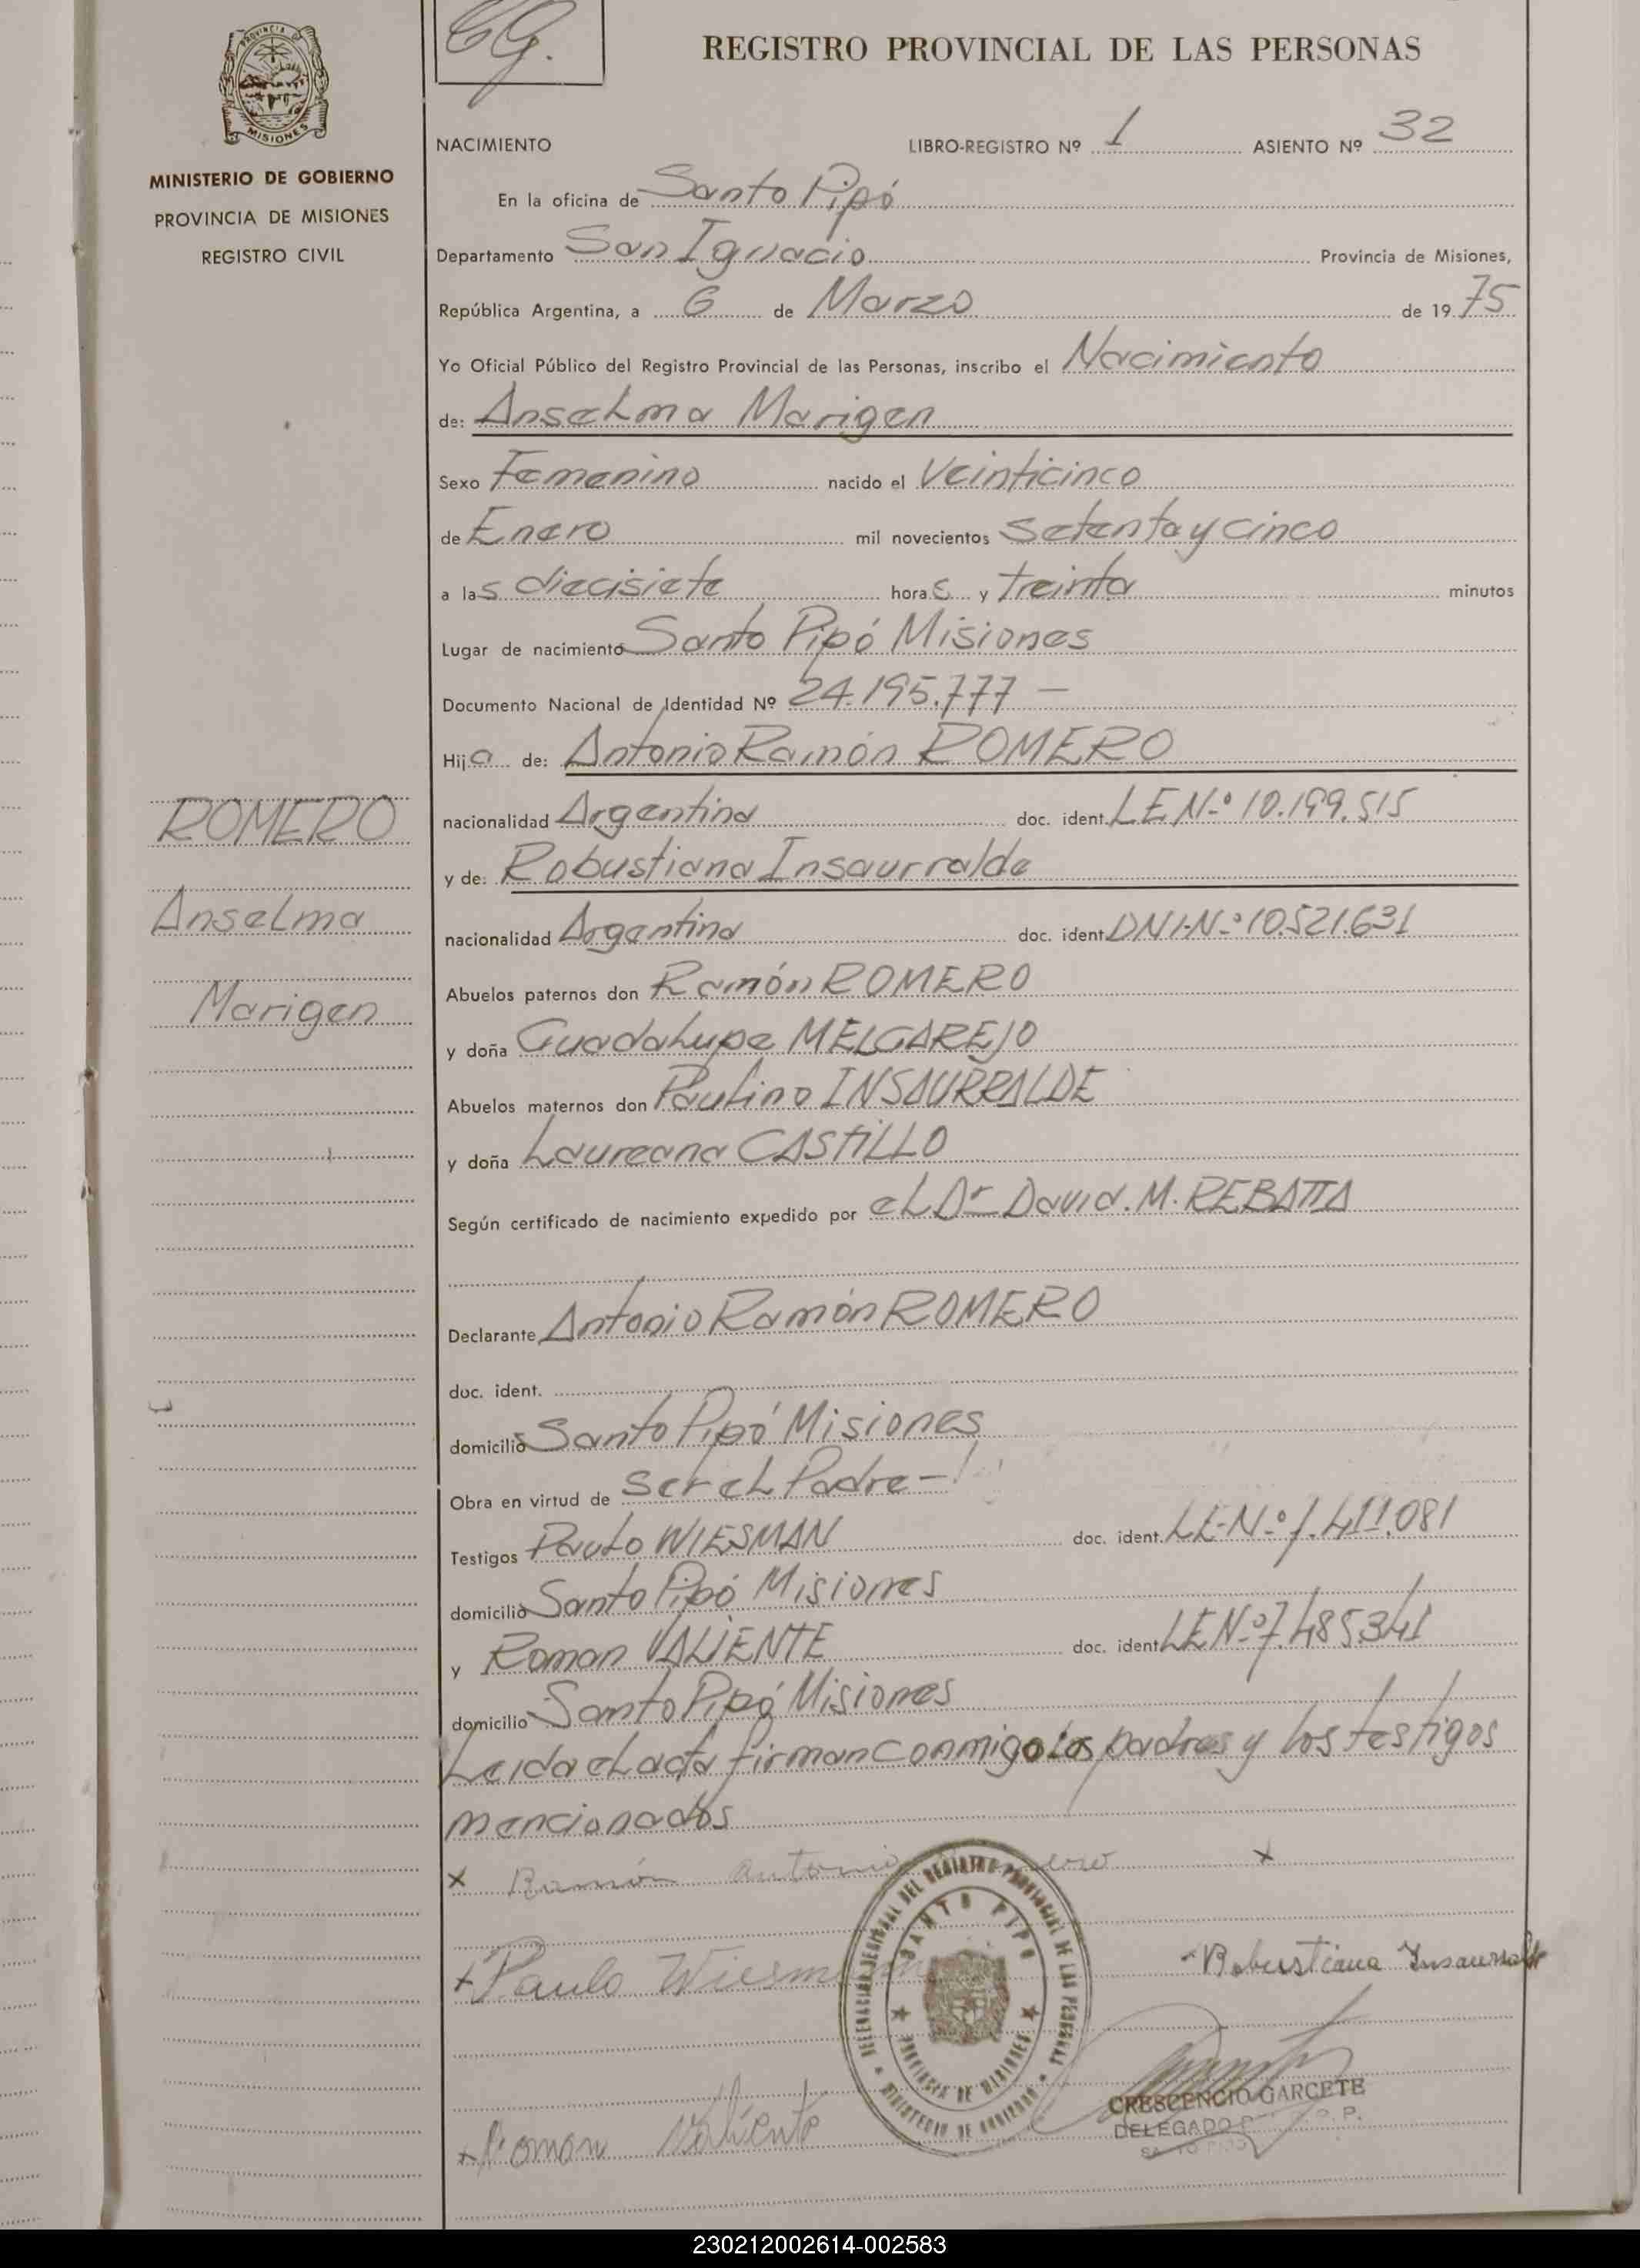 69.
REGISTRO PROVINCIAL DE LAS PERSONAS
MISIONES
MINISTERIO DE GOBIERNO
PROVINCIA DE MISIONES
REGISTRO CIVIL
NACIMIENTO LIBRO-REGISTRO Nº 1 ASIENTO Nº 32
En la oficina de Santo Pipó
Departamento San Ignacio Provincia de Misiones,
República Argentina, a 6 de Marzo de 1975
Yo Oficial Público del Registro Provincial de las Personas, inscribo el Nacimiento
de: Anselma Marigen
Sexo Femenino nacido el Veinticinco
de Enero mil novecientos setenta y cinco
a las diecisiete horas y treinta minutos
Lugar de nacimiento Santo Pipó Misiones
Documento Nacional de Identidad Nº 24.195.777 —
Hija de: Antonio Ramón ROMERO
nacionalidad Argentina doc. ident. LE N-º 10.199.515
y de: Robustiana Insaurralde
nacionalidad Argentina doc. ident. DNI-N-º 10.521.631
Abuelos paternos don Ramón ROMERO
y doña Guadalupe MELGAREJO
Abuelos maternos don Paulino INSAURRALDE
y doña Laureana CASTILLO
Según certificado de nacimiento expedido por el Dr David. M. REBATTA
Declarante Antonio Ramón ROMERO
doc. ident.
domicilio Santo Pipó Misiones
Obra en virtud de ser el Padre -
Testigos Paulo WIESMAN doc. ident. LE-N-º 7.411.081
domicilio Santo Pipó Misiones
y Roman VALIENTE doc. ident. LE N-º 7.485.341
domicilio Santo Pipó Misiones
Leida el acta firman conmigo los padres y los testigos
mencionados
ROMERO
Anselma
Marigen
x Ramón Antonio x
+ Paulo Wiesmann
- Robustiana Insaurralde
+ Roman Valiente
SANTO PIPO
PROVINCIA DE MISIONES
DEL REGISTRO PROVINCIAL DE LAS PERSONAS
MINISTERIO DE GOBIERNO
CRESCENCIO GARCETE
DELEGADO
230212002614-002583